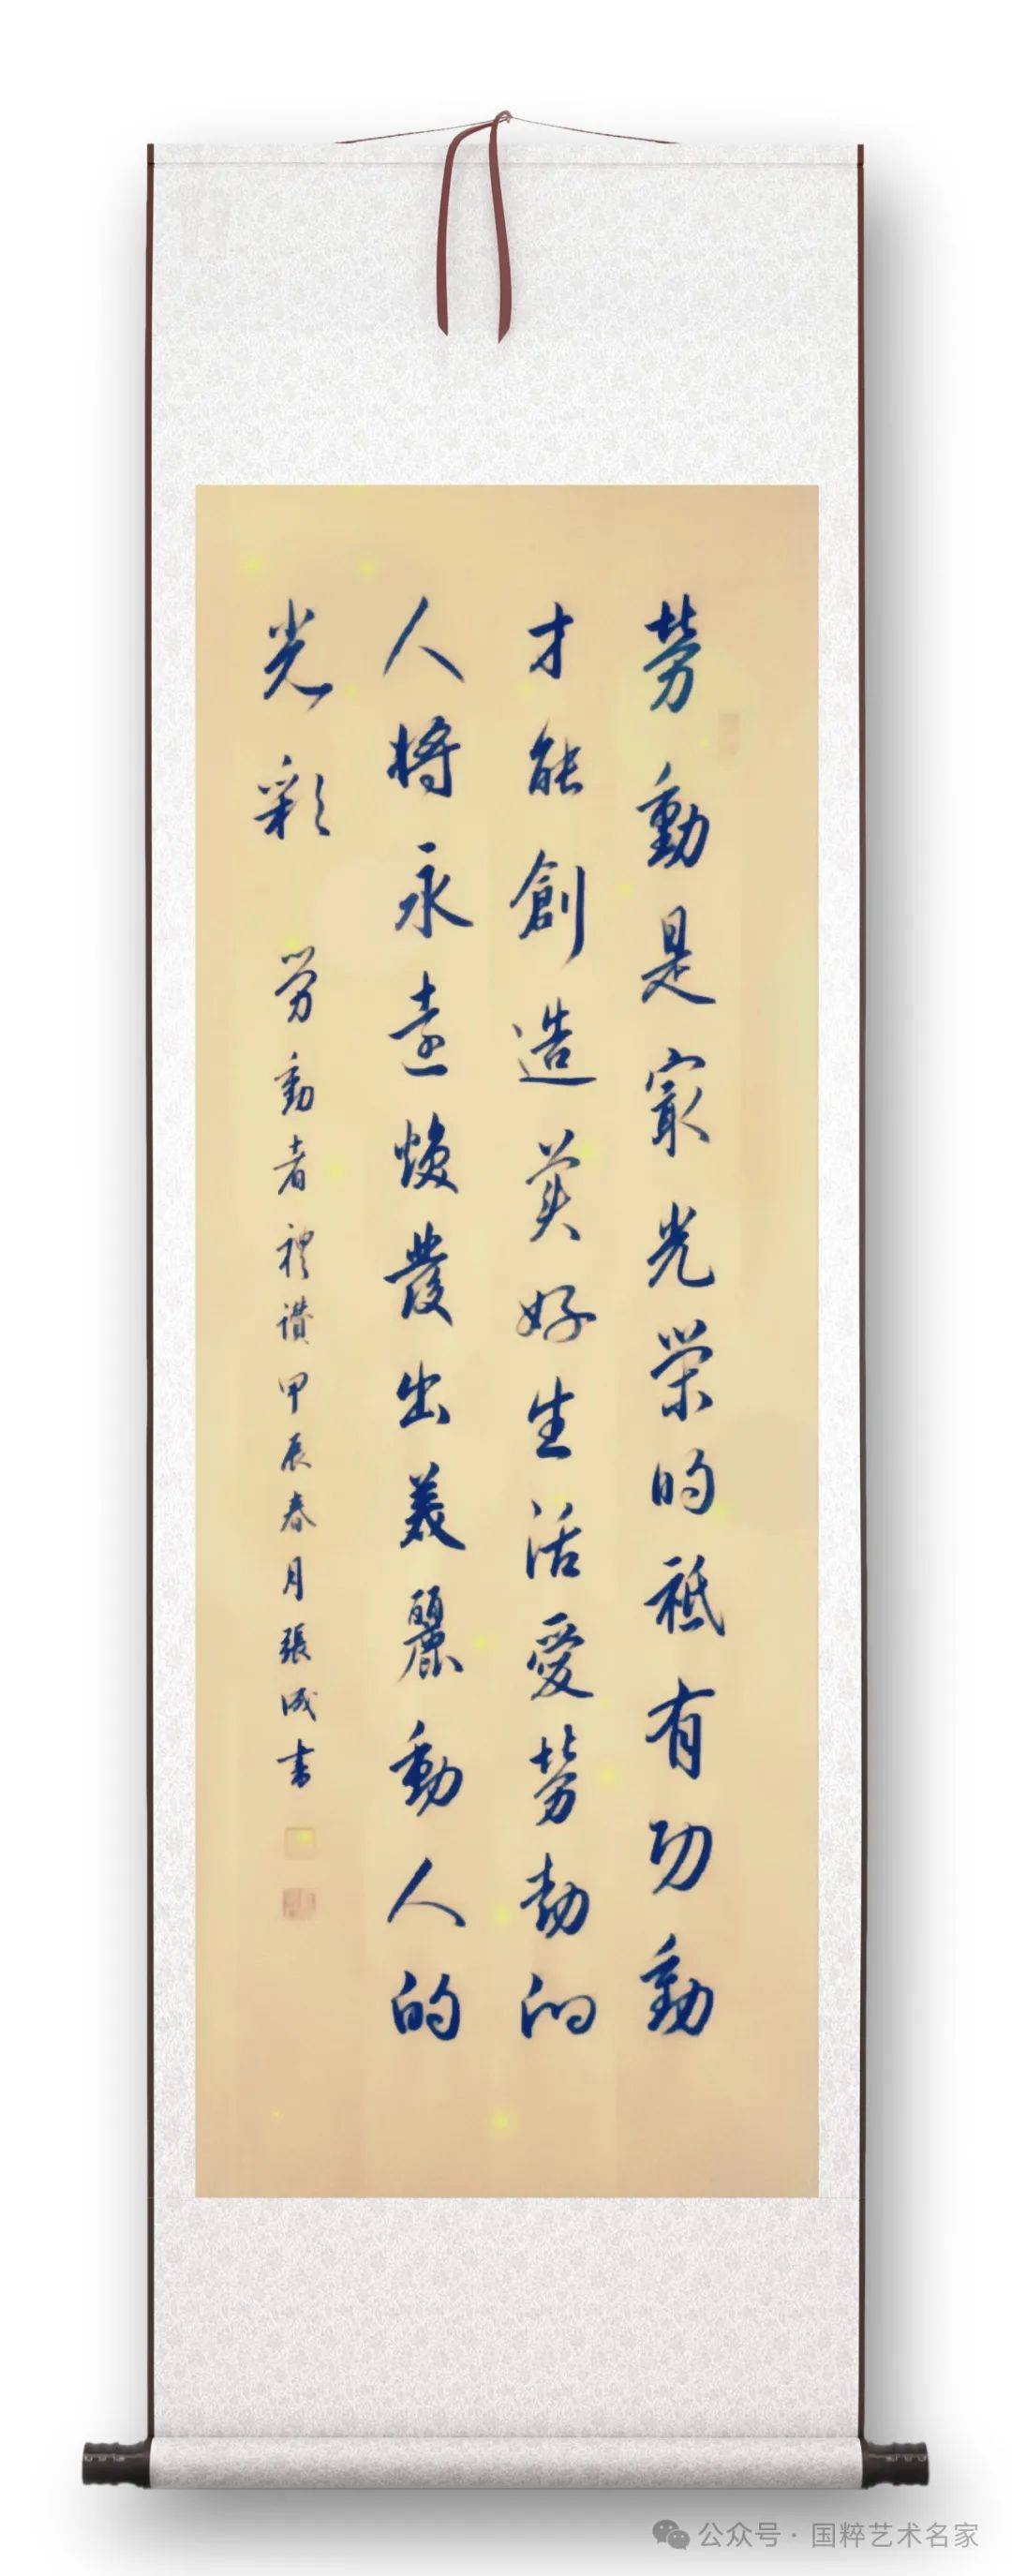 勞動是冣光榮的祗有勞動
才能創造美好生活愛勞動的
人將永遠煥發出美麗動人的
光彩
勞動者禮讚甲辰春月張成書
公众号 · 国粹艺术名家